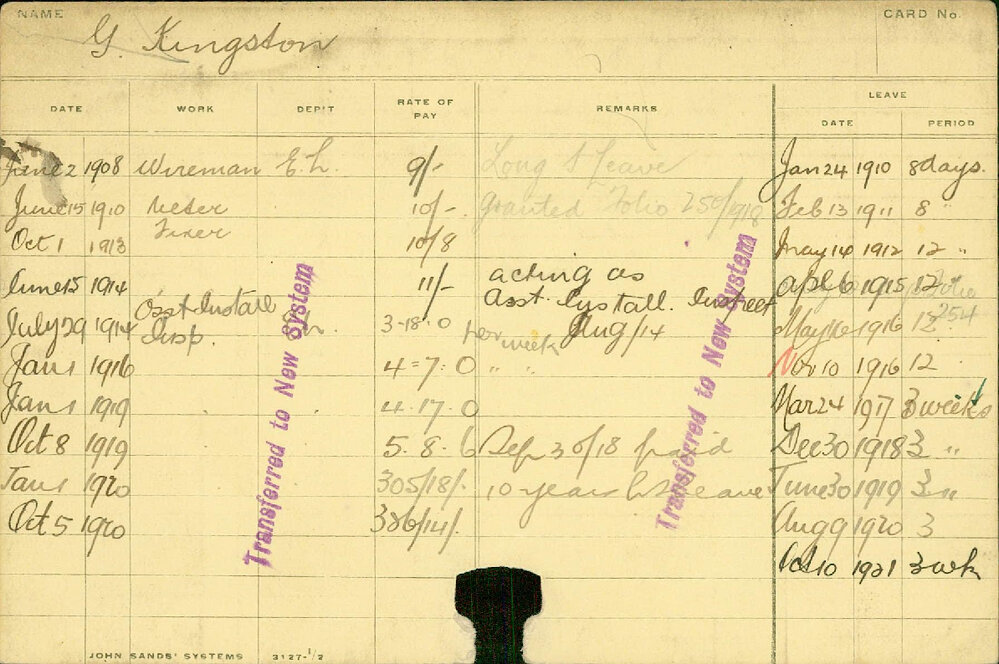 NAME
CARD No.
G. Kingston
DATE WORK DEP'T RATE OF PAY REMARKS LEAVE
DATE PERIOD
June 2 1908 Wireman E.L. 9/- Long S Leave Jan 24 1910 8 days.
June 15 1910 Meter 10/- Granted Folio 250/1918 Feb 13 1911 8 "
Oct 1 1913 Fixer 10/8 May 14 1912 12 "
June 15 1914 11/- acting as Apl 6 1915 12 Folio 254
Asst. Install. Inspect
July 29 1914 Asst Install Insp. 3-18-0 per week Aug/14 May 16 1916 12
Jan 1 1916 4=7-0 " " Nov 10 1916 12
Jan 1 1919 4-17-0 Mar 24 1917 3 weeks
Oct 8 1919 5.8.6 Sep 30/18 paid Dec 30 1918 3 "
Jan 1 1920 305/18/- 10 years Leave June 30 1919 3 "
Oct 5 1920 386/14/- Aug 9 1920 3
Oct 10 1921 3 wk
Transferred to New System
Transferred to New System
JOHN SANDS' SYSTEMS 3127-1/2